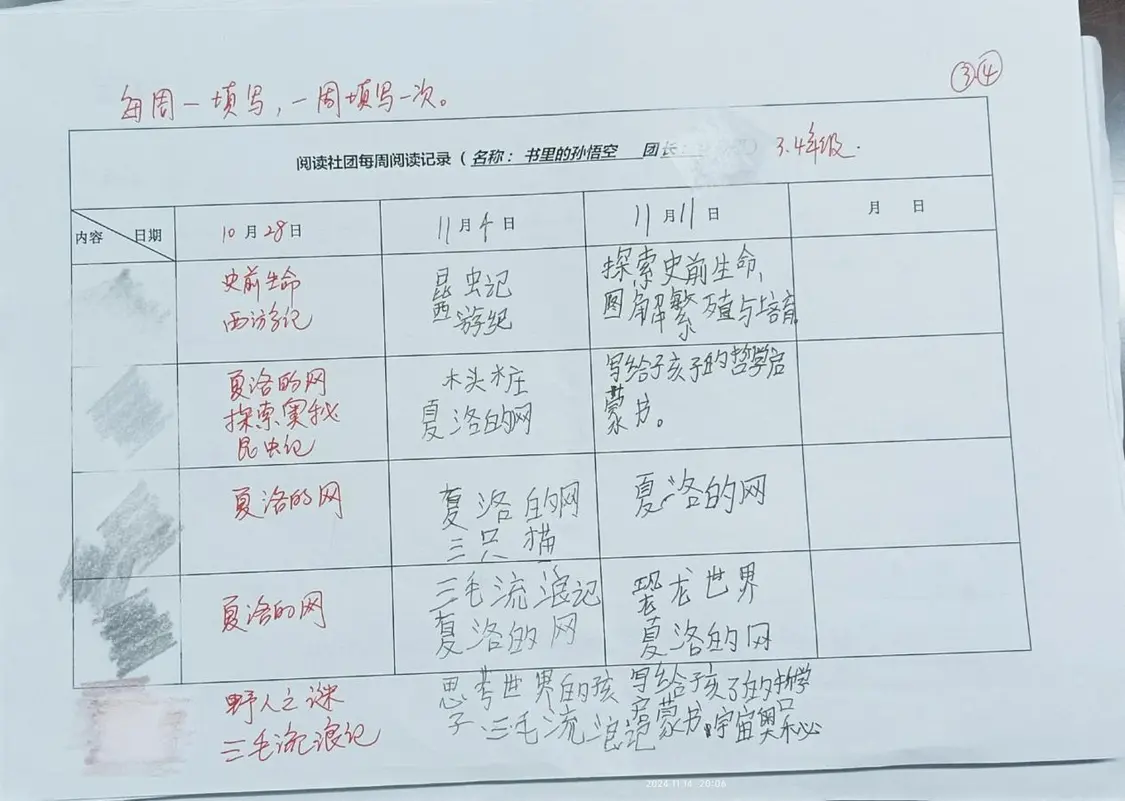 ③④
每周一填写，一周填写一次。
阅读社团每周阅读记录（名称：书里的孙悟空 团长： 3.4年级.
内容 日期
10月28日
11月4日
11月11日
月 日
史前生命
西游记
昆虫记
西游纪
探索史前生命，
图解繁殖与培育
夏洛的网
探索奥秘
昆虫记
木头木庄
夏洛的网
写给孩子的哲学启
蒙书。
夏洛的网
夏洛的网
三只猫
夏洛的网
夏洛的网
三毛流浪记
夏洛的网
恐龙世界
夏洛的网
野人之谜
三毛流浪记
思考世界的孩
子.三毛流浪记
写给孩子的哲学
启蒙书 宇宙奥秘
2024-11-14 20:06